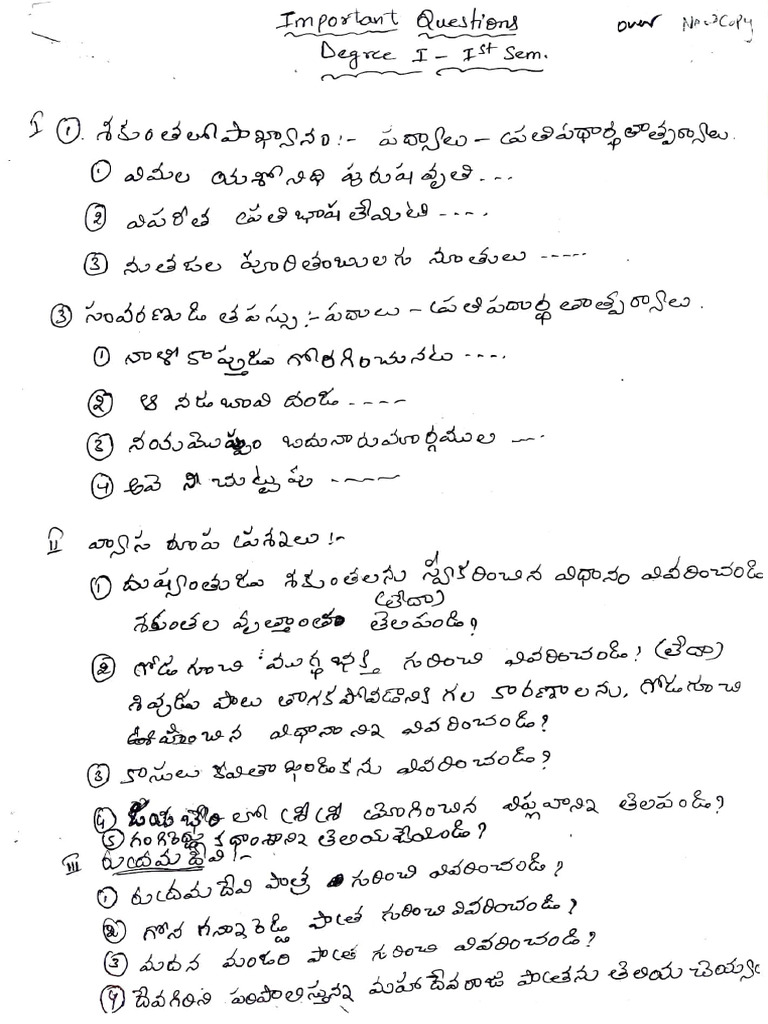 Important Questions
Degree I - Ist Sem.
I ①. శకుంతలోపాఖ్యానం :- పద్యాలు - ప్రతిపదార్థ తాత్పర్యాలు.
① విమల యశోనిధీ పురుషవృత్త ....
② విపరీత ప్రతిభాషలేమిటి ----.
③ నుతజల పూరితంబులగు నూతులు -----
③ సంవరణుడి తపస్సు :- పదాలు - ప్రతిపదార్థ తాత్పర్యాలు.
① నాళీకాప్తుడు గోరగించునటు ----.
② ఆ నడుబావి దండ ----
③ నయమొప్పం బదునారుమార్గముల ---.
④ అవె నీ చుట్టుపు ----
II వ్యాస రూప ప్రశ్నలు :-
① దుష్యంతుడు శకుంతలను స్వీకరించిన విధానం వివరించండి
(లేదా)
శకుంతల వృత్తాంతం తెలపండి?
② గోడగూచి ముగ్ధభక్తి గురించి వివరించండి! (లేదా)
శివుడు పాలు తాగకపోవడానికి గల కారణాలను, గోడగూచి
ఊహించిన విధానాన్ని వివరించండి?
③ కాసులు కవితా ఖండికను వివరించండి?
④ జయభేరి లో శ్రీశ్రీ మోగించిన విప్లవాన్ని తెలపండి?
⑤ గంగిరెద్దు కథాంశాన్ని తెలియచేయండి?
III రుద్రమదేవి :-
① రుద్రమదేవి పాత్ర గురించి వివరించండి?
② గోన గన్నారెడ్డి పాత్ర గురించి వివరించండి?
③ మదన మంజరి పాత్ర గురించి వివరించండి?
④ దేవగిరిని పరిపాలిస్తున్న మహాదేవరాజు పాత్రను తెలియ చెయ్యం